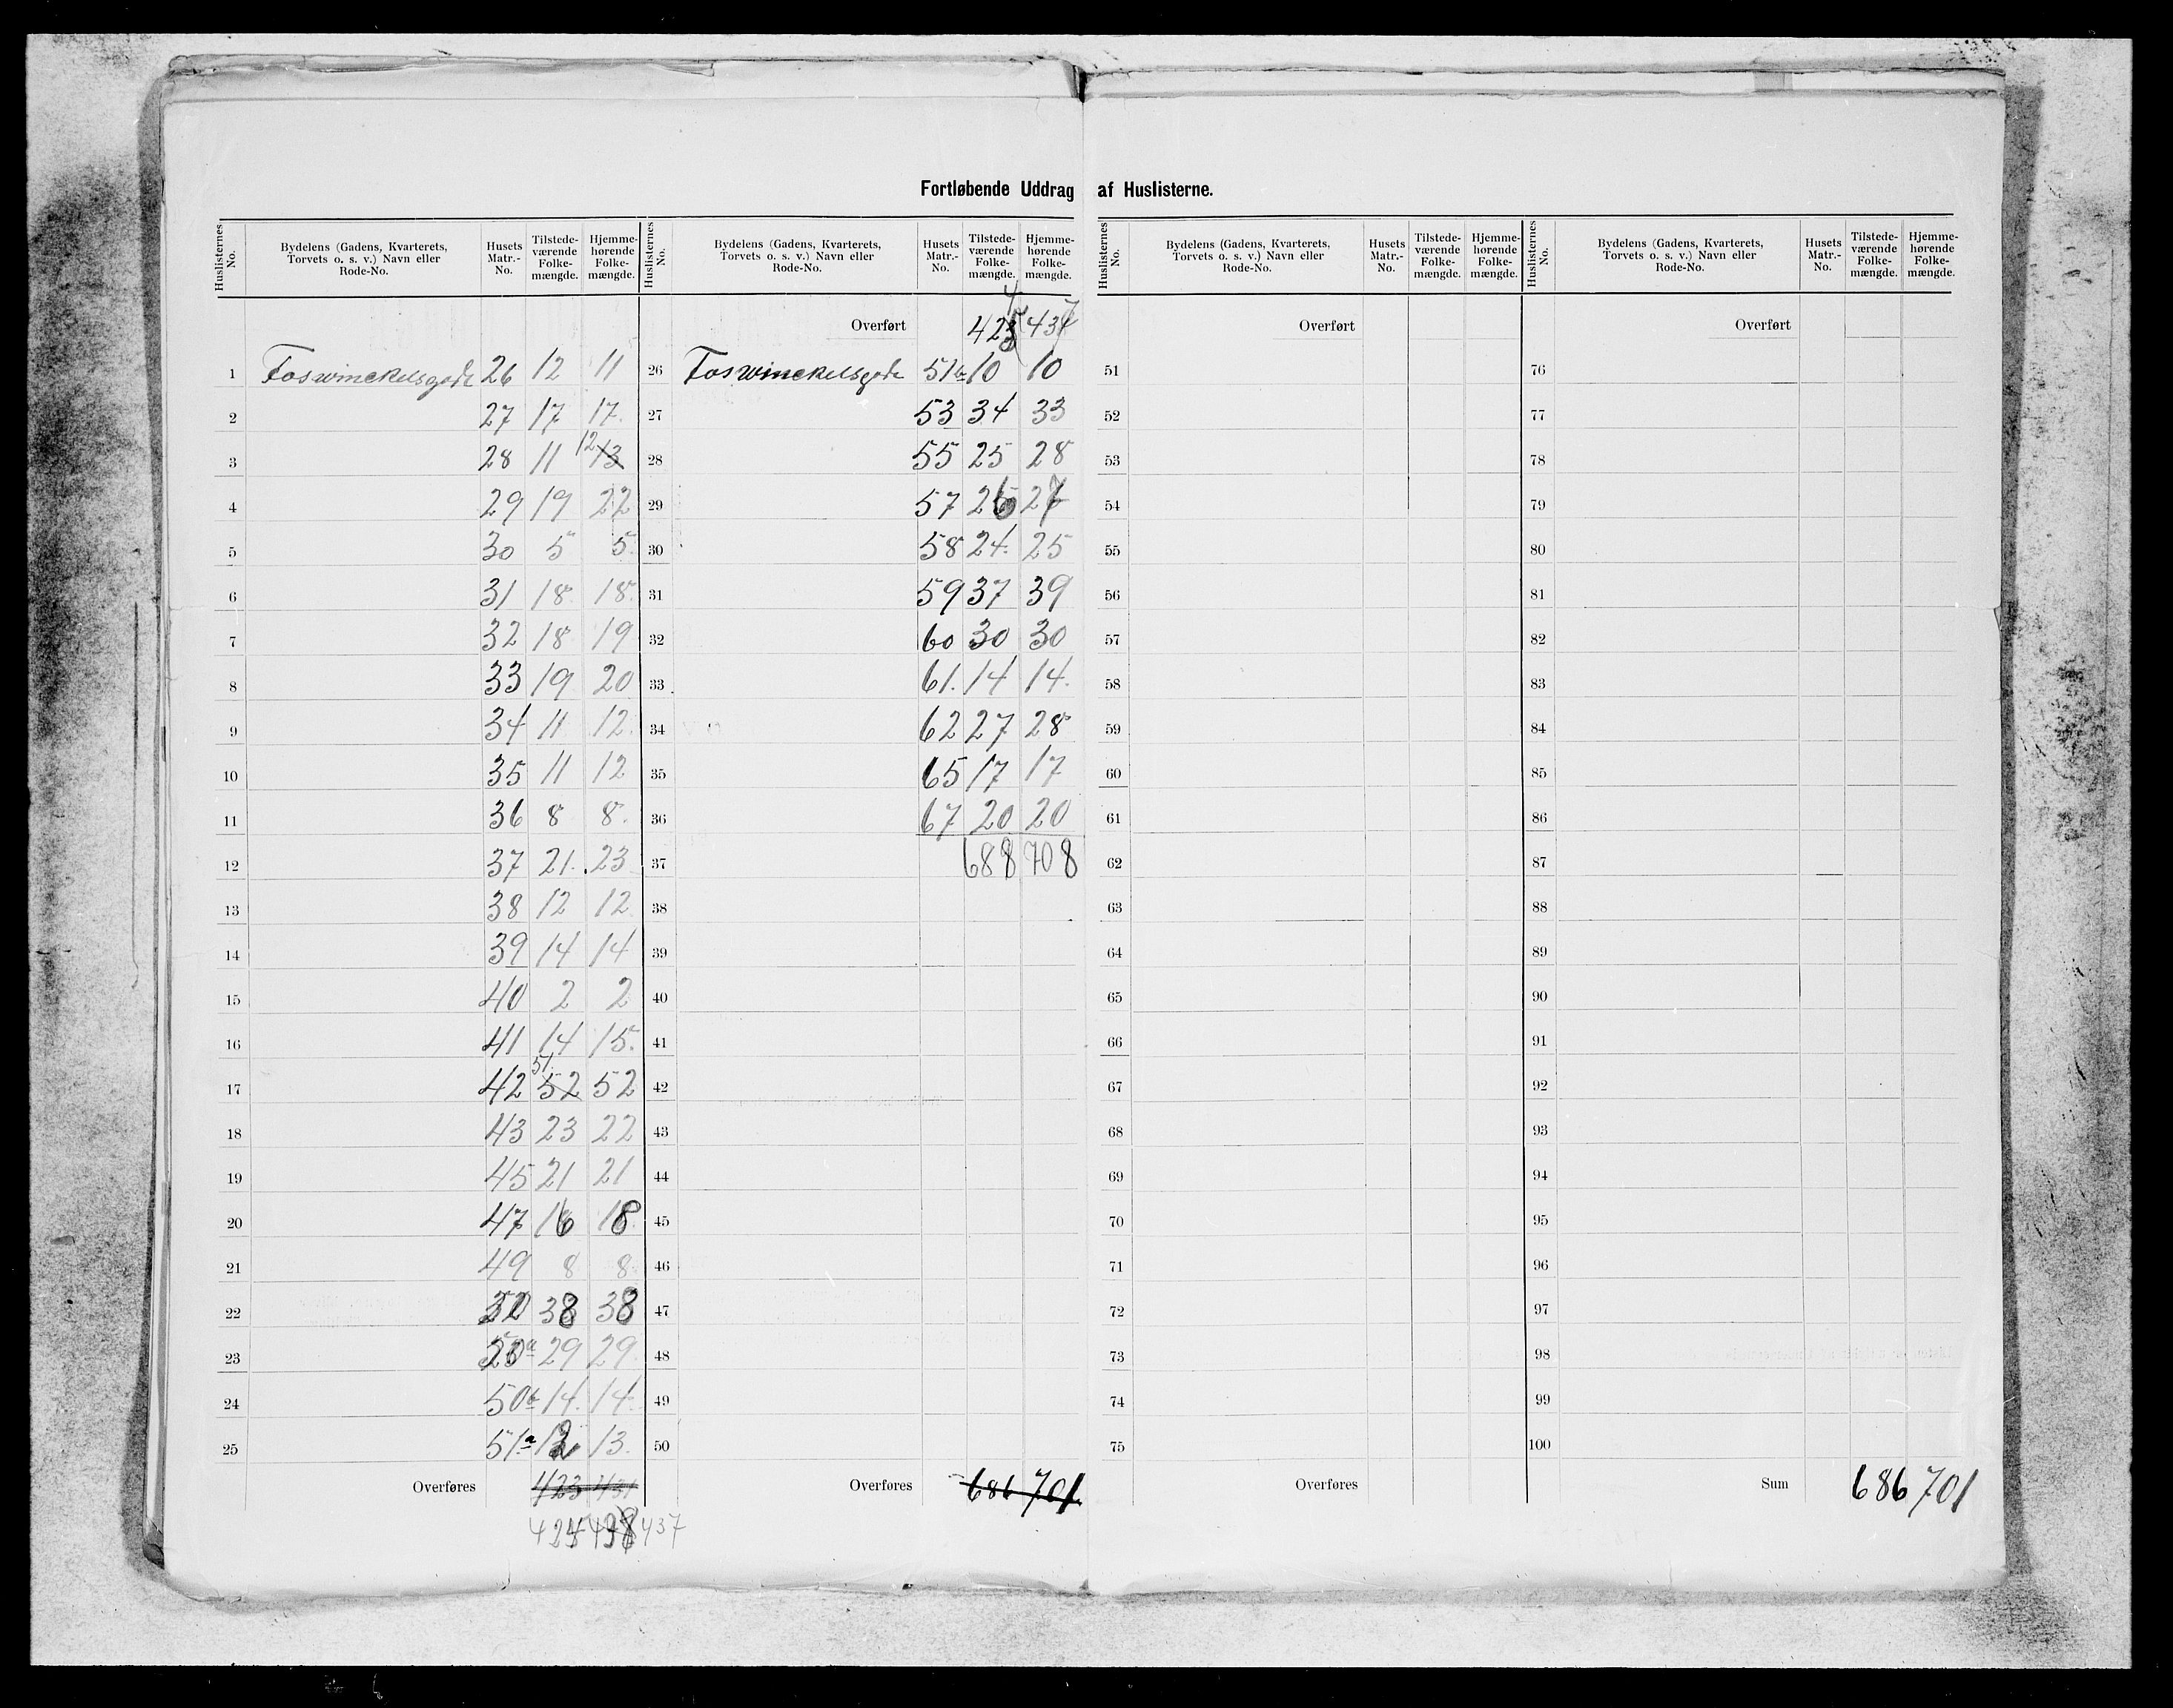 Fortløbende Uddrag af Huslisterne.
Huslisternes No. Bydelens (Gadens, Kvarterets, Torvets o. s. v.) Navn eller Rode-No. Husets Matr.-No. Tilstedeværende Folkemængde. Hjemmehørende Folkemængde.
1 Foswinckelsgade 26 12 11
2 27 17 17.
3 28 11 12 13
4 29 19 22
5 30 5 5.
6 31 18 18.
7 32 18 19
8 33 19 20
9 34 11 12.
10 35 11 12
11 36 8 8.
12 37 21. 23
13 38 12 12
14 39 14 14
15 40 2 2
16 41 14 15.
17 42 51 52 52
18 43 23 22
19 45 21 21
20 47 16 18
21 49 8 8.
22 38 38
23 50a 29 29.
24 50b 14. 14.
25 51a 13.
Overføres 423 431
437
Huslisternes No. Bydelens (Gadens, Kvarterets, Torvets o. s. v.) Navn eller Rode-No. Husets Matr.-No. Tilstedeværende Folkemængde. Hjemmehørende Folkemængde.
Overført
26 Foswinckelsgade 51b 10 10
27 53 34 33
28 55 25 28
29 57 26 27
30 58 24. 25
31 59 37 39
32 60 30 30
33 61. 14 14.
34 62 27 28
35 65 17 17
36 67 20 20
37 688 708
38
39
40
41
42
43
44
45
46
47
48
49
50
Overføres 686 701
Huslisternes No. Bydelens (Gadens, Kvarterets, Torvets o. s. v.) Navn eller Rode-No. Husets Matr.-No. Tilstedeværende Folkemængde. Hjemmehørende Folkemængde.
Overført
51
52
53
54
55
56
57
58
59
60
61
62
63
64
65
66
67
68
69
70
71
72
73
74
75
Overføres
Huslisternes No. Bydelens (Gadens, Kvarterets, Torvets o. s. v.) Navn eller Rode-No. Husets Matr.-No. Tilstedeværende Folkemængde. Hjemmehørende Folkemængde.
Overført
76
77
78
79
80
81
82
83
84
85
86
87
88
89
90
91
92
93
94
95
96
97
98
99
100
Sum 686 701